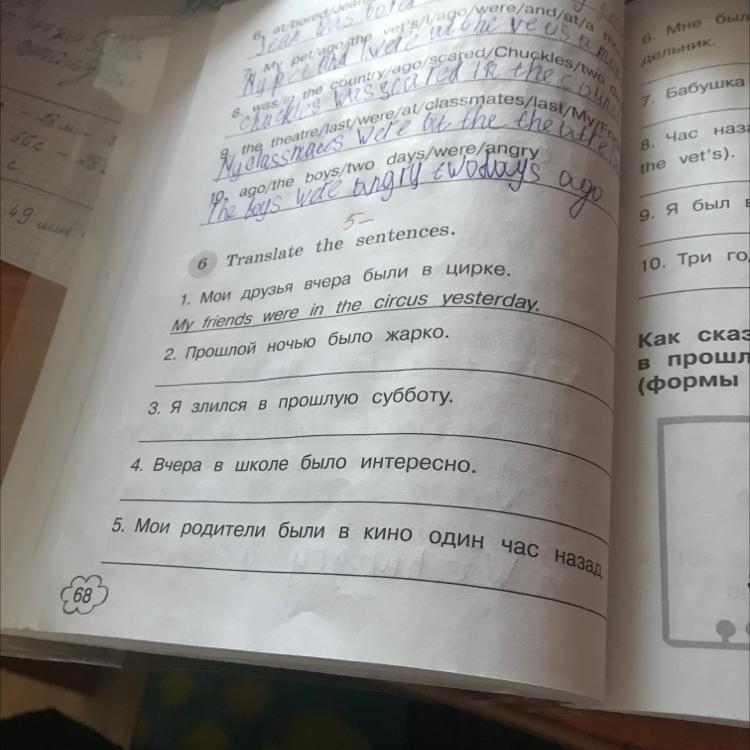 6. at/bored/Jean/
Jean was bored
7. My pet/ago/the vet's/I/ago/were/and/at/a
My pet and I were at the vet's a
8. was/in the country/ago/scared/Chuckles/two
Chuckles was scared in the coun
9. the theatre/last/were/at/classmates/last/My/Fri
My classmates were at the theatre
10. ago/the boys/two days/were/angry
The boys were angry two days ago
5-
6 Translate the sentences.
1. Мои друзья вчера были в цирке.
My friends were in the circus yesterday.
2. Прошлой ночью было жарко.
3. Я злился в прошлую субботу.
4. Вчера в школе было интересно.
5. Мои родители были в кино один час назад
68
6. Мне был
дельник.
7. Бабушка
8. Час наза
the vet's).
9. Я был в
10. Три го
Как сказ
в прошл
(формы
49 мин